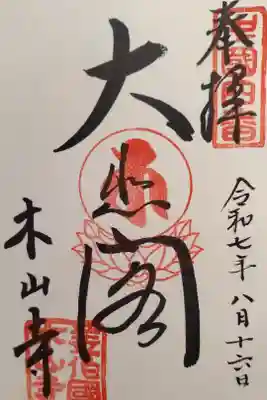 奉拝
令和七年八月十六日
大悲閣
木山寺